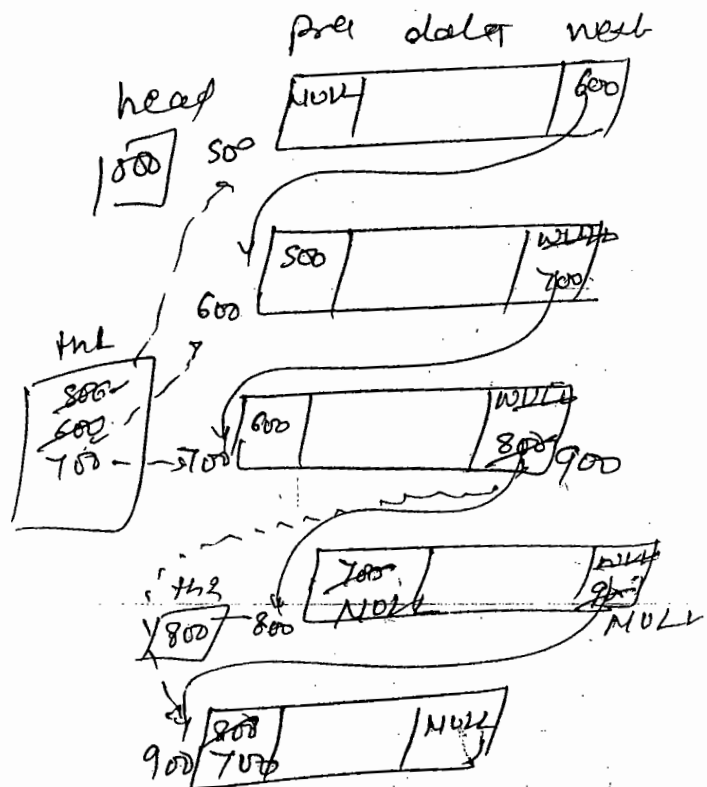 pre data next
head
NULL 600
500
500
600 NULL
700
th1
500
600
700
700 600 NULL
800 900
th2
800 800
700 NULL
NULL 900
NULL
900 800 NULL
700